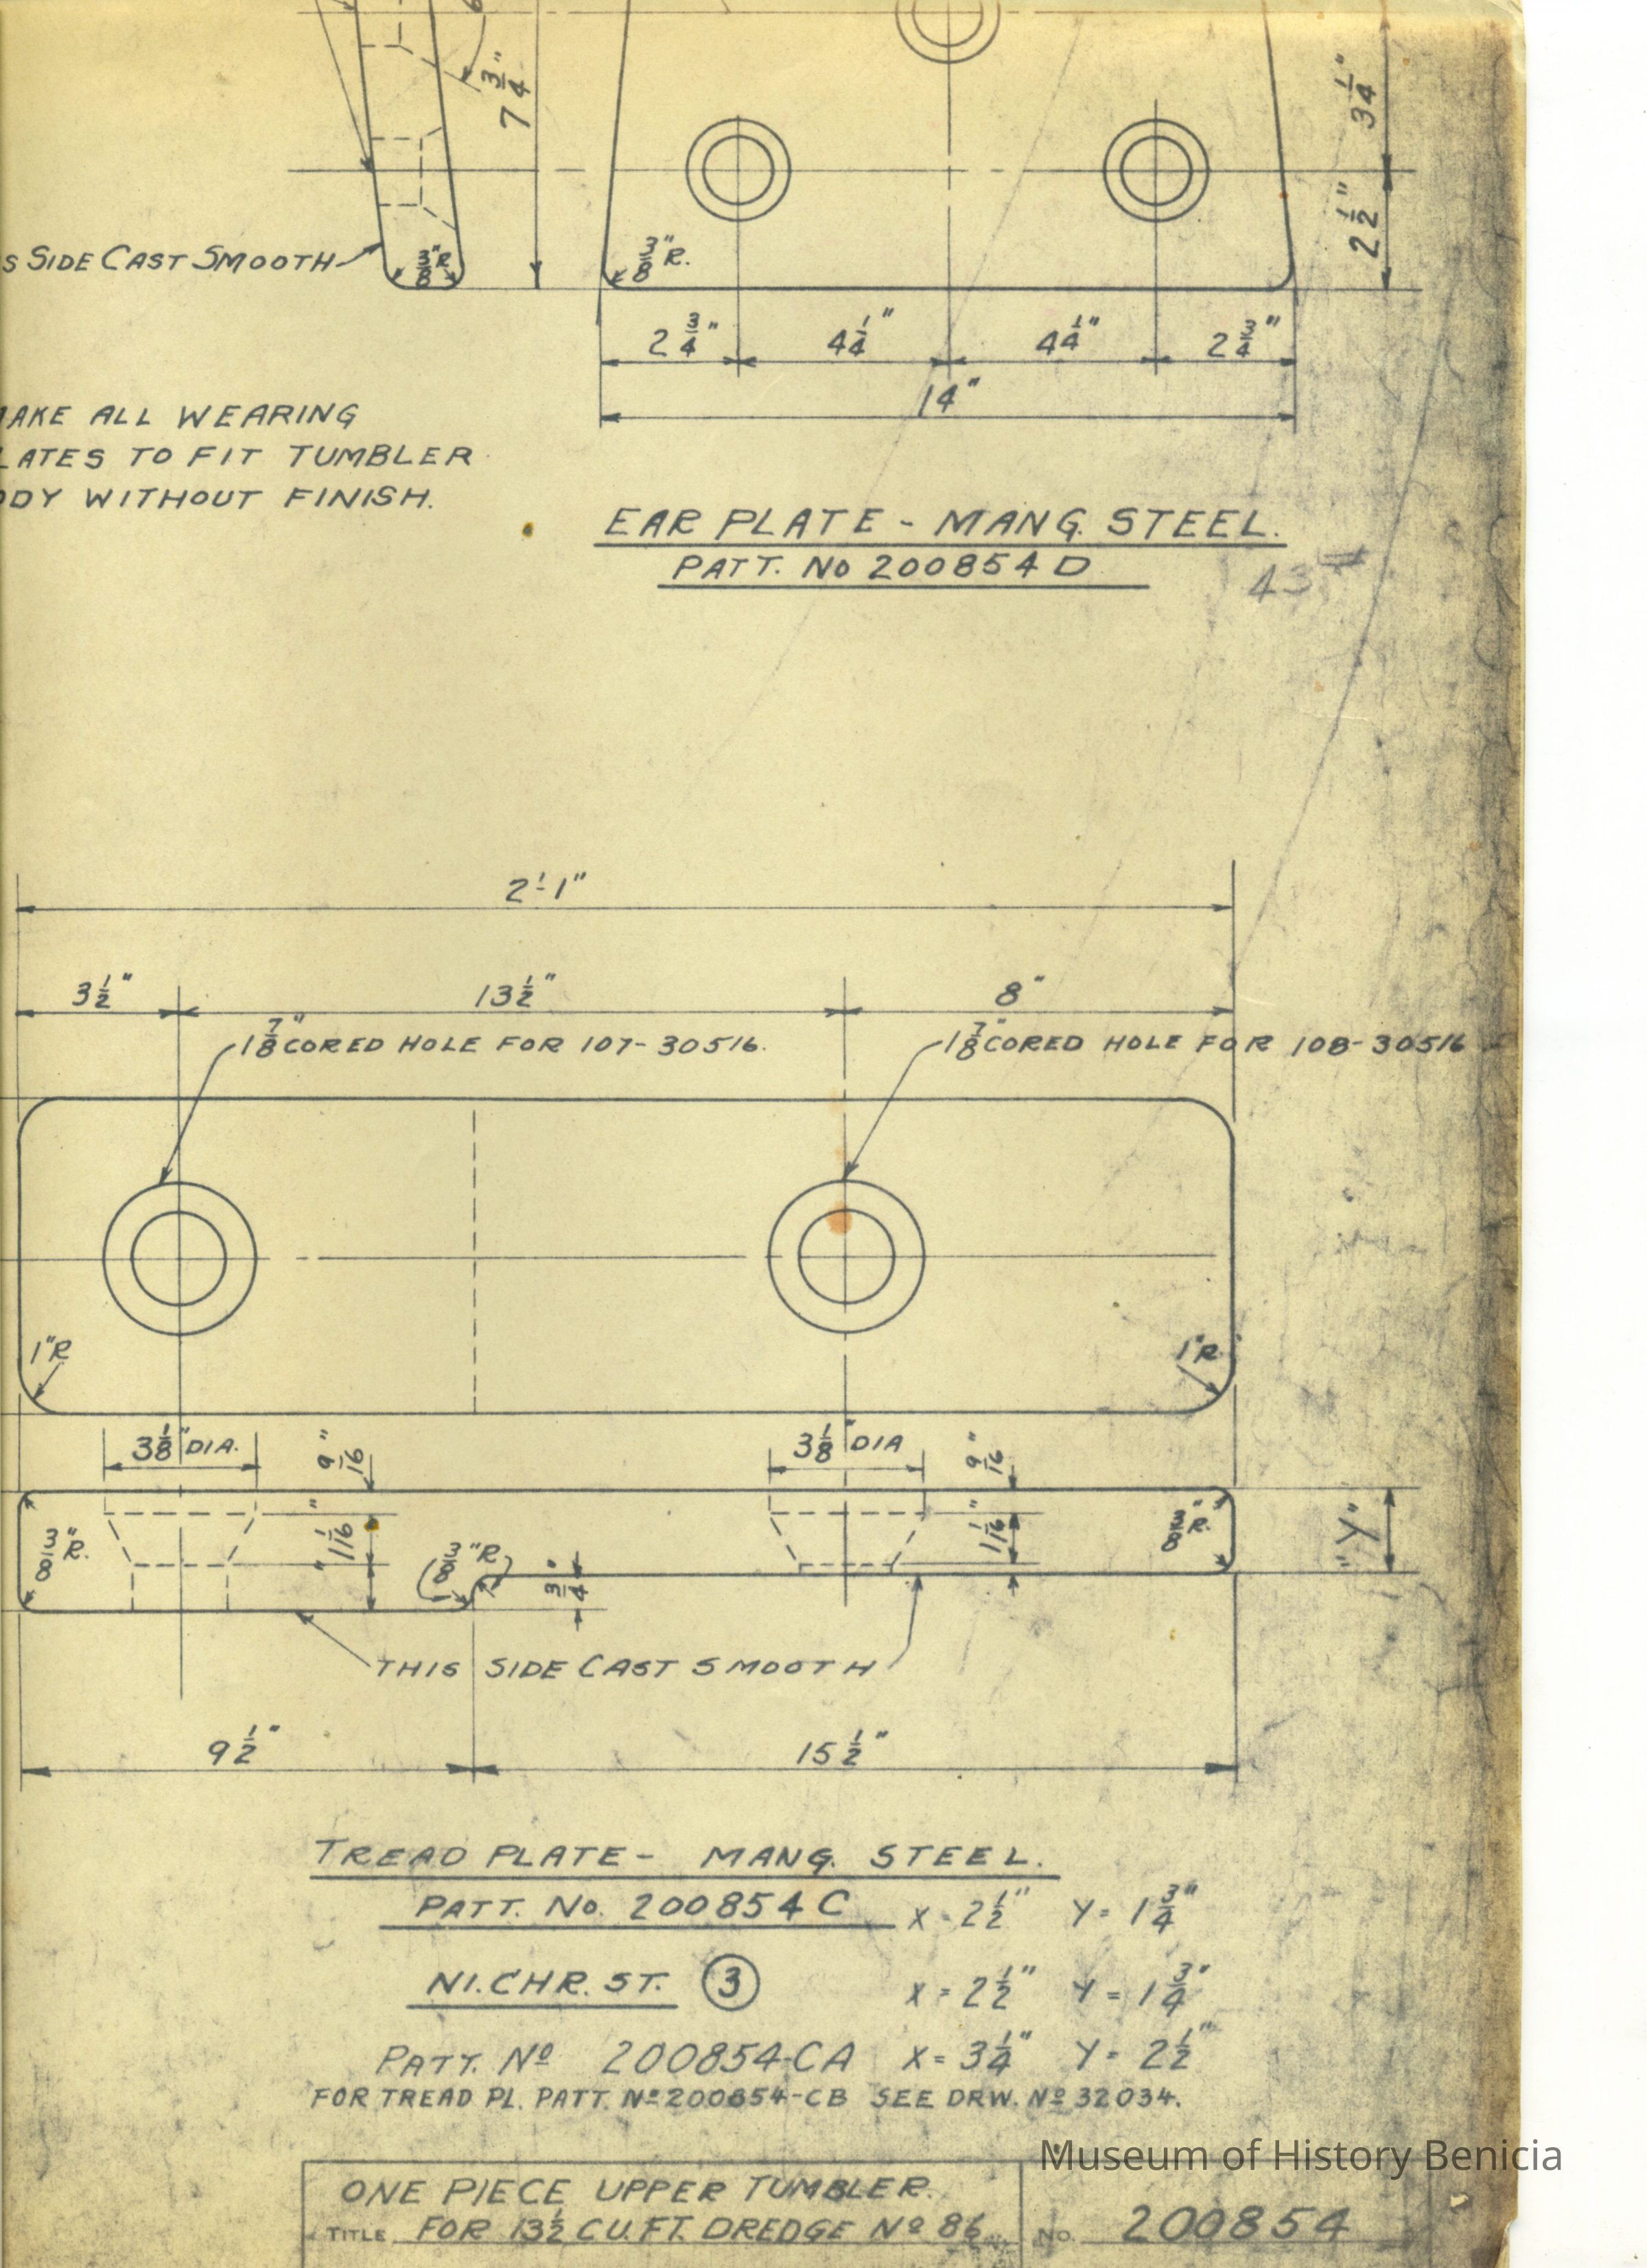 6
7 3/4"
3 1/4"
2 1/2"
S SIDE CAST SMOOTH
3/8"R
3/8"R.
2 3/4" 4 1/4" 4 1/4" 2 3/4"
14"
MAKE ALL WEARING
LATES TO FIT TUMBLER
ODY WITHOUT FINISH.
EAR PLATE - MANG. STEEL.
PATT. NO 200854 D
43#
2'-1"
3 1/2" 13 1/2" 8"
1 7/8" CORED HOLE FOR 107-30516.
1 7/8" CORED HOLE FOR 108-30516
1"R
1"R.
3 1/8" DIA.
9/16"
3 1/8" DIA
9/16"
3/8"R.
1 1/16"
3/8"R
3/4"
1 1/16"
3/8"R.
"Y"
THIS SIDE CAST SMOOTH
9 1/2" 15 1/2"
TREAD PLATE - MANG. STEEL.
PATT. No. 200854 C X = 2 1/2" Y = 1 3/4"
NI. CHR. ST. 3 X = 2 1/2" Y = 1 3/4"
PATT. Nº 200854-CA X = 3 1/4" Y = 2 1/2"
FOR TREAD PL. PATT. Nº 200854-CB SEE DRW. Nº 32034.
Museum of History Benicia
ONE PIECE UPPER TUMBLER.
TITLE FOR 13 1/2 CU. FT. DREDGE Nº 86
NO. 200854